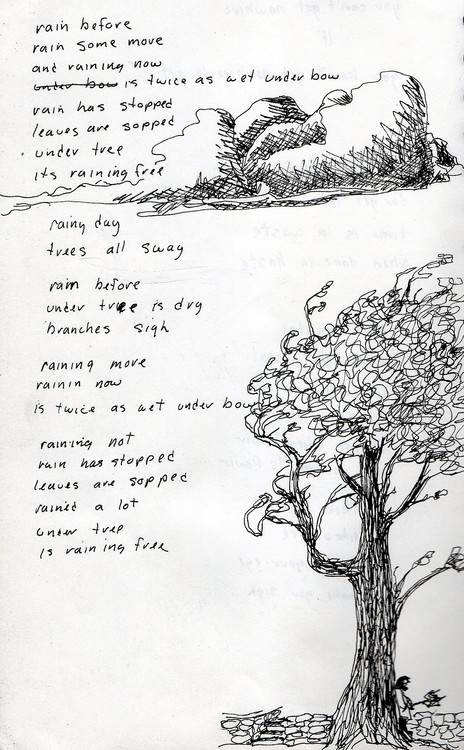 rain before
rain some more
and raining now
under bow is twice as wet under bow
rain has stopped
leaves are sopped
under tree
its raining free
rainy day
trees all sway
rain before
under tree is dry
branches sigh
raining more
rainin now
is twice as wet under bow
raining not
rain has stopped
leaves are sopped
rained a lot
under tree
is raining free